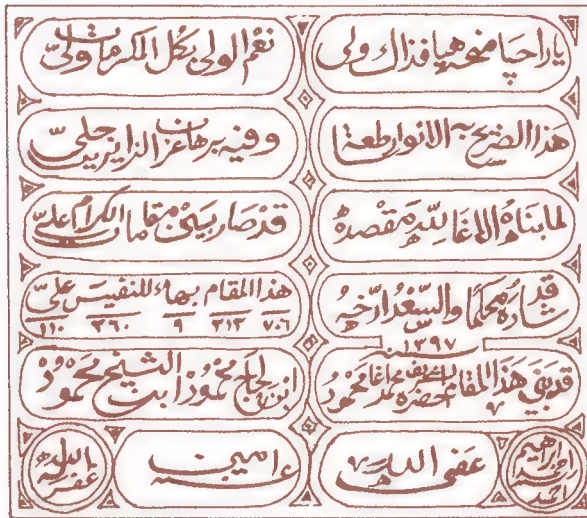 ياراجيا منحة هيا فذاك ولي نعم الولي بكل المكرمات ولي
هذا الضريح به الانوار وفيه برهان عز الزايرين جلي
لما بناه الاغا لله مقصده قد صار بين مقامات الكرام علي
قد شاده محكما والسعد ارخه هذا المقام بهاء للنفيس علي
٧٠٦ ٢١٢ ٩ ٣٦٠ ١١٠
سنة ١٣٩٧
قد بني هذا المقام الشريف حضرة محمد اغا محمود ابن الحاج محمود ابن الشيخ محمود
ابراهيم احمد عفى الله عنه امين